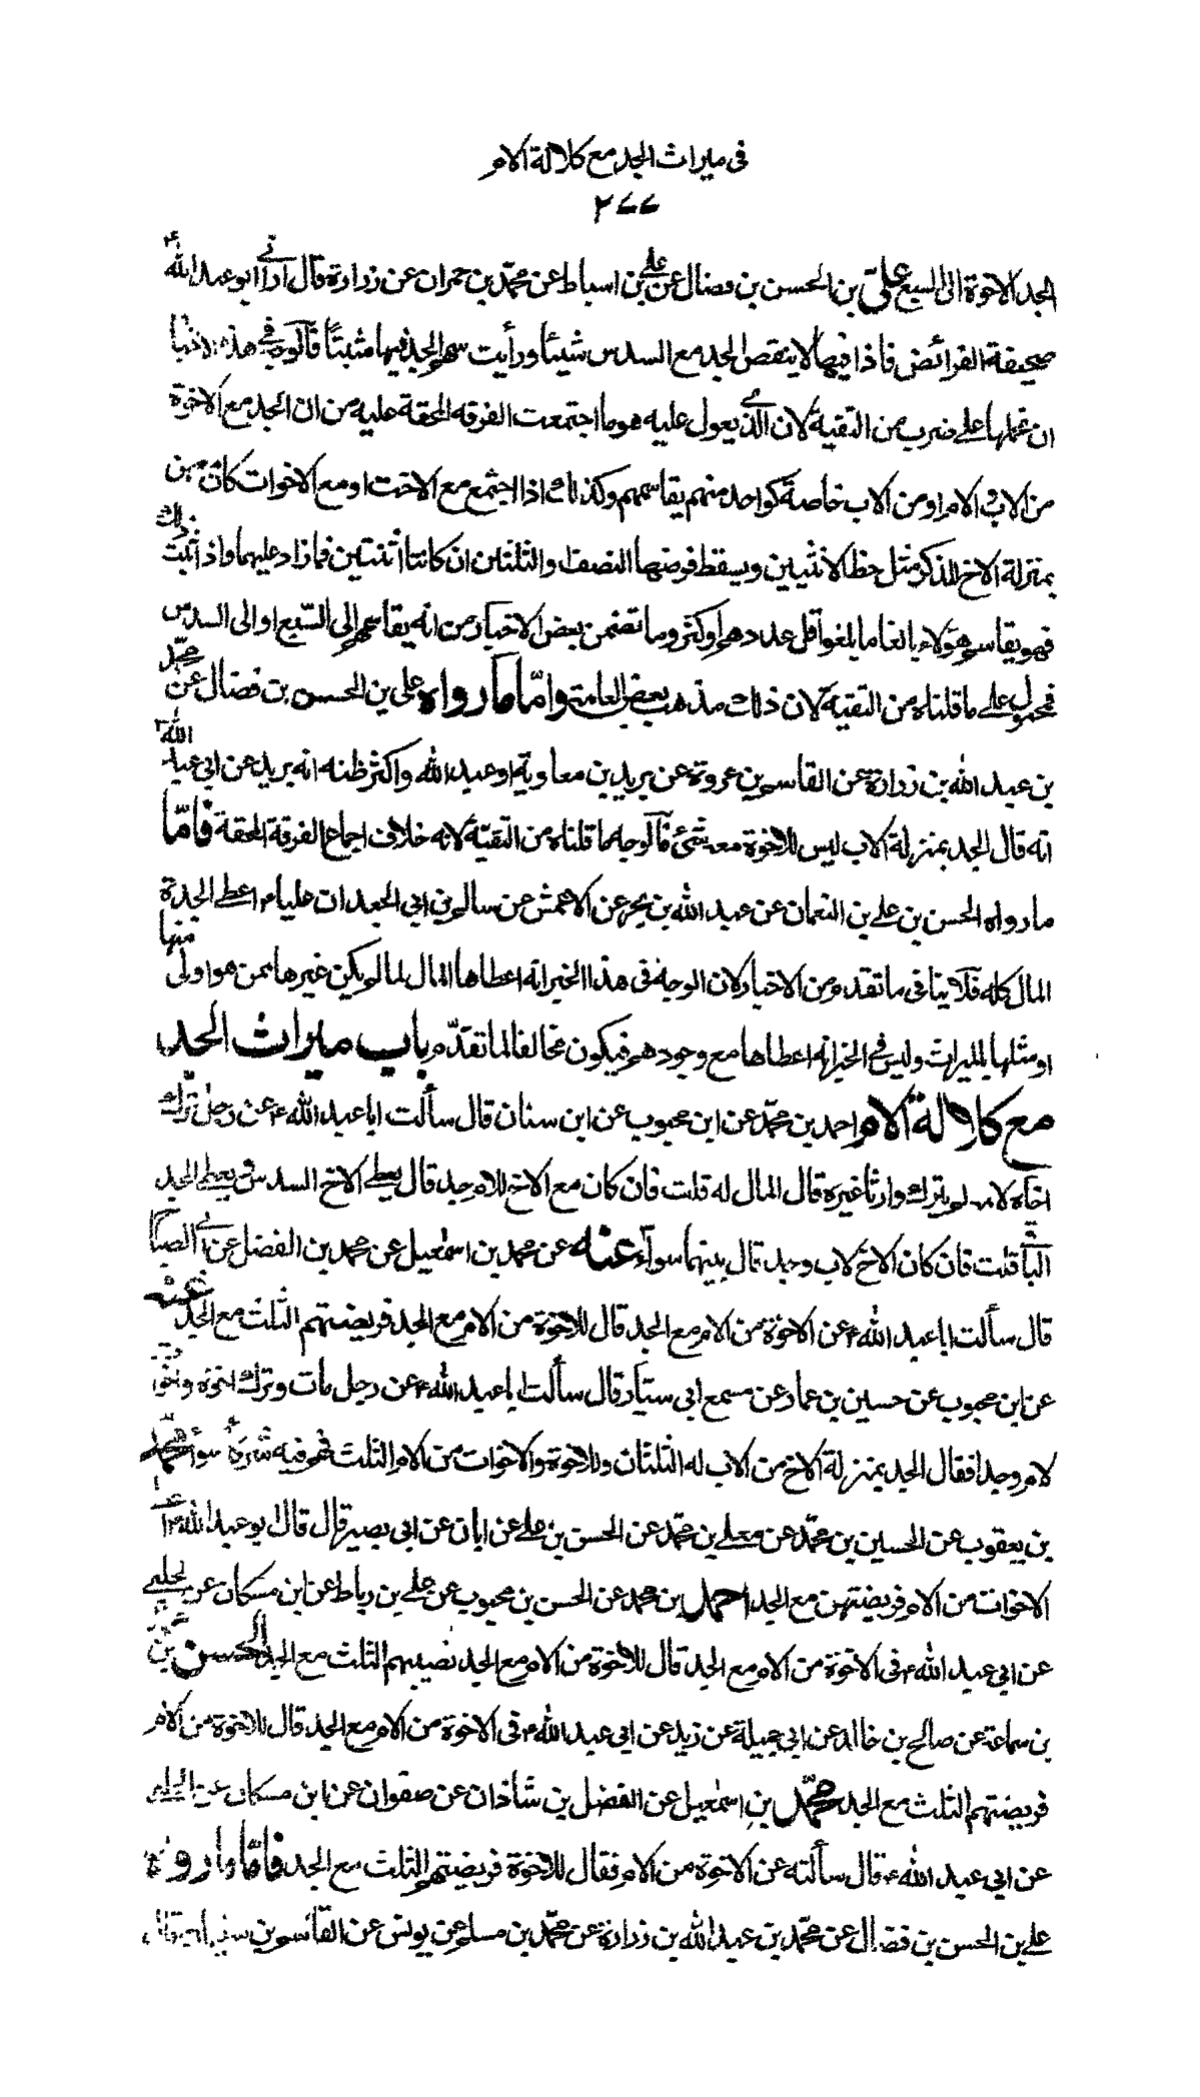 فى ميراث الجد مع كلالة الام
٢٧٧
الجد الاخوة الى السبع علىّ بن الحسن بن فضال عن على بن اسباط عن محمّد بن حمران عن زرارة قال ارانى ابو عبد الله ع
صحيفة الفرائض فاذا فيها لا ينقص الجد مع السدس شيئا ورأيت سهم الجد فيها مثبتا فالوجه فى هذه الاخبار
ان نحملها على ضرب من التقية لان الذى يعول عليه هو ما اجتمعت الفرقه المحقة عليه من ان الجد مع الاخوة
من الاب والام او من الاب خاصة كواحد منهم يقاسمهم وكذلك اذا اجتمع مع الاخت او مع الاخوات كان معهن
بمنزلة الاخ للذكر مثل حظ الانثيين ويسقط فرضها النصف والثلثين ان كانتا اثنتين فما زاد عليهما واذا ثبت ذلك
فهو يقاسم هؤلاء بالغا ما بلغوا قل عددهم او كثر وما تضمن بعض الاخبار من انه يقاسمهم الى السّبع او الى السدس
فمحمول على ما قلناه من التقية لان ذلك مذهب بعض العامة وامّا ما رواه على بن الحسن بن فضال عن محمّد
بن عبد الله بن زرارة عن القاسم بن عروة عن بريد بن معاوية او عبد الله واكثر ظنه انه بريد عن ابى عبد الله ع
انه قال الجد بمنزلة الاب ليس للاخوة معه شئ فالوجه ما قلناه من التقيّة لانه خلاف اجماع الفرقة المحقة فامّا
ما رواه الحسن بن على بن النعمان عن عبد الله بن بحر عن الاعمش عن سالم بن ابى الجعد ان عليا ع اعطى الجدة
المال كله فلا ينافى ما تقدم من الاخبار لان الوجه فى هذا الخبر انه اعطاها المال لما لم يكن غيرها ممن هو اولى منها
او مثلها بالميراث وليس فى الخبر انه اعطاها مع وجودهم فيكون مخالفا لما تقدّم باب ميراث الجد
مع كلالة الام احمد بن محمّد عن ابن محبوب عن ابن سنان قال سألت ابا عبد الله ع عن رجل ترك
اخاه لامه لم يترك وارثا غيره قال المال له قلت فان كان مع الاخ للام جد قال يعطى الاخ السدس ويعطى الجد
الباقى قلت فان كان الاخ لاب وجد قال بينهما سواء عنه عن محمد بن اسمعيل عن محمد بن الفضل عن ابى الصباح
قال سألت ابا عبد الله ع عن الاخوة من الام مع الجد قال للاخوة من الام مع الجد فريضتهم الثلث مع الجد عنه
عن ابن محبوب عن حسين بن عمار عن مسمع ابى سيّار قال سألت ابا عبد الله ع عن رجل مات وترك اخوة واخوات
لام وجدا فقال الجد بمنزلة الاخ من الاب له الثلثان وللاخوة والاخوات من الام الثلث فهم فيه شركاء سواء محمّد
بن يعقوب عن الحسين بن محمّد عن معلى بن محمّد عن الحسن بن على عن ابان عن ابى بصير قال قال ابو عبد الله ع
الاخوات من الام فريضتهن مع الجد احمد بن محمد عن الحسن بن محبوب عن على بن رباط عن ابن مسكان عن الحلبى
عن ابى عبد الله ع فى الاخوة من الام مع الجد قال للاخوة من الام مع الجد نصيبهم الثلث مع الجد الحسن بن
بن سماعة عن صالح بن خالد عن ابى جميلة عن زيد عن ابى عبد الله ع فى الاخوة من الام مع الجد قال للاخوة من الام
فريضتهم الثلث مع الجد محمّد بن اسمعيل عن الفضل بن شاذان عن صفوان عن ابن مسكان عن الحلبى
عن ابى عبد الله ع قال سألته عن الاخوة من الام فقال للاخوة فريضتهم الثلث مع الجد فامّا ما رواه
على بن الحسن بن فضال عن محمّد بن عبد الله بن زرارة عن محمّد بن مسلم عن يونس عن القاسم بن